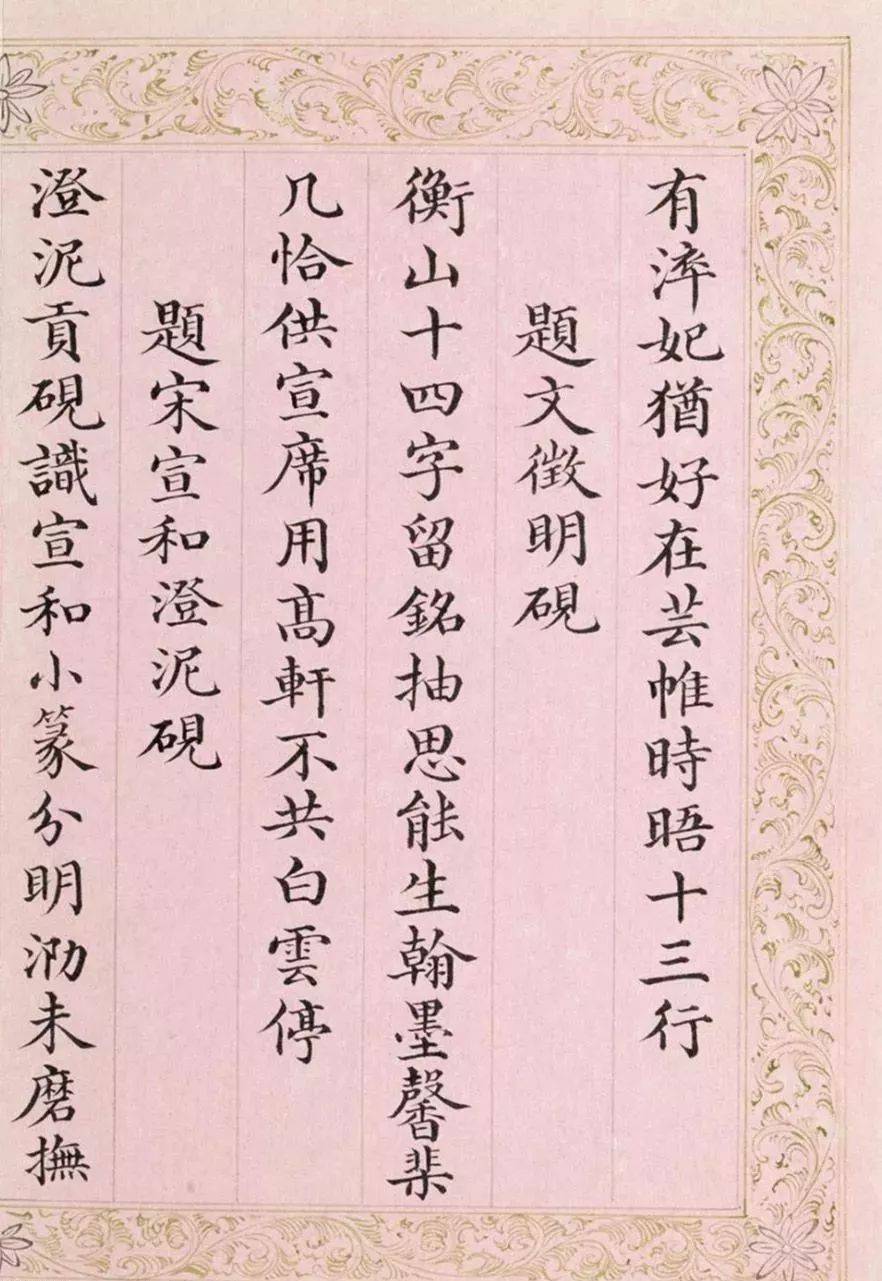 有淬妃猶好在芸帷時晤十三行
題文徵明硯
衡山十四字留銘抽思能生翰墨馨棐
几恰供宣席用高軒不共白雲停
題宋宣和澄泥硯
澄泥貢硯識宣和小篆分明泐未磨撫